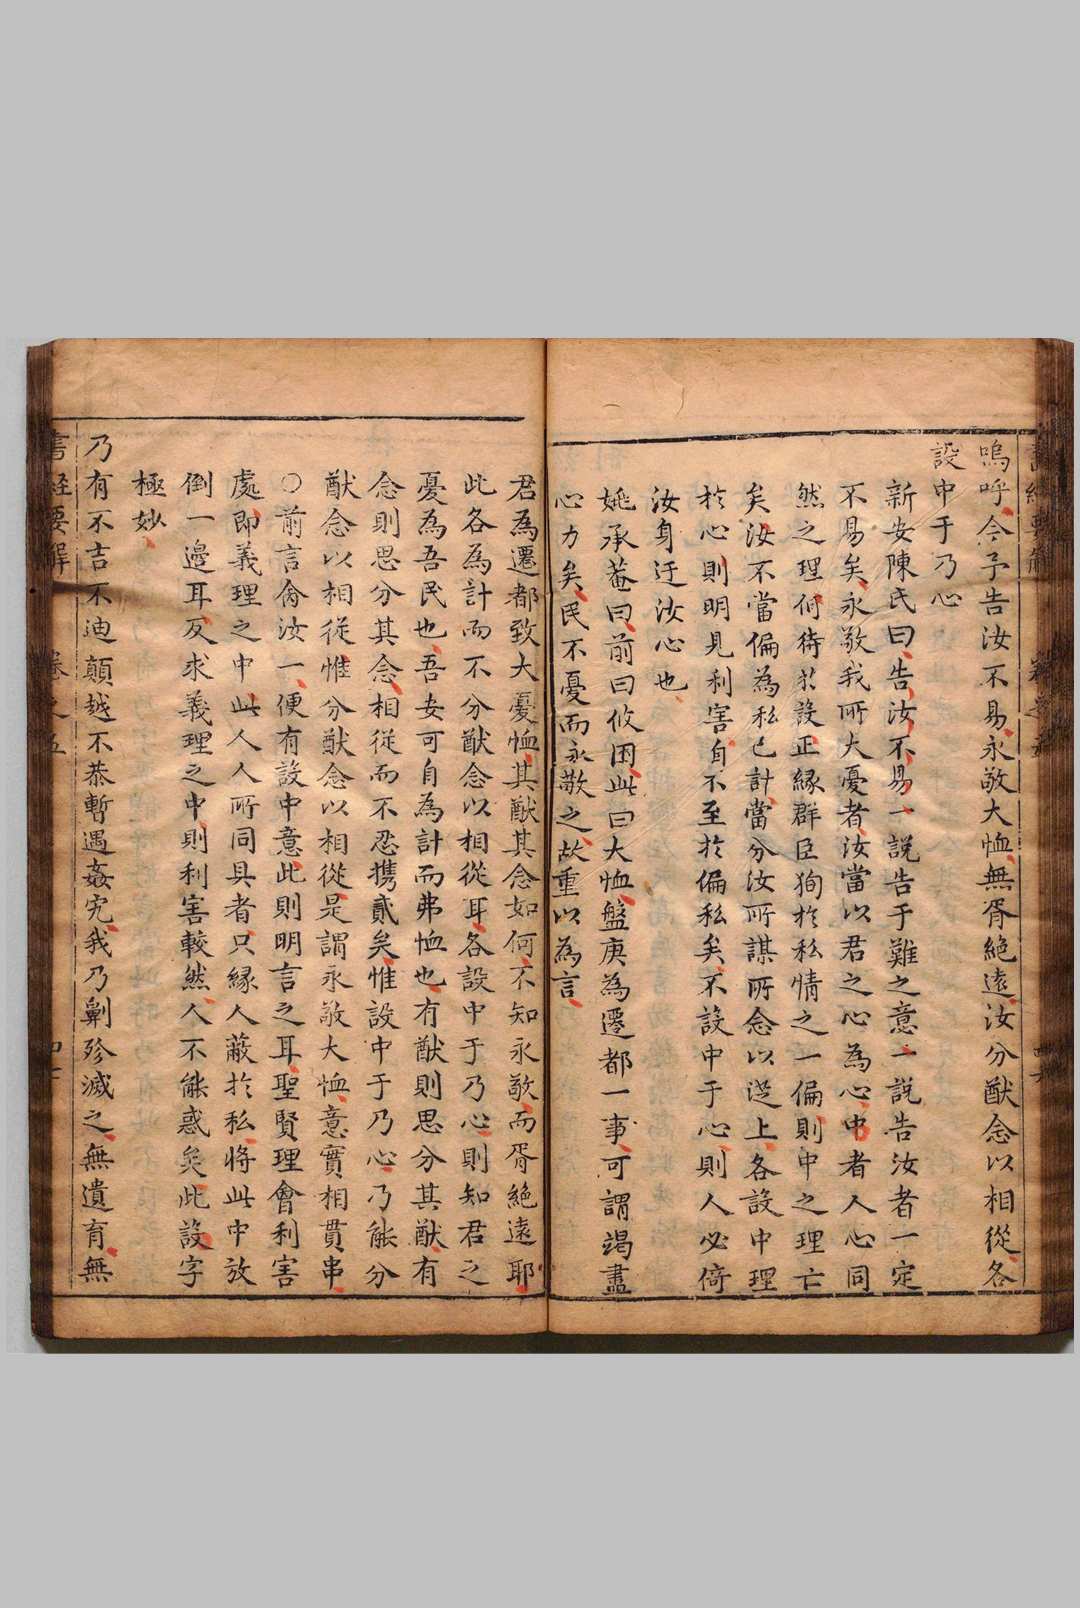 嗚呼今予告汝不易永敬大恤無胥絶遠汝分猷念以相從各
設中于乃心
新安陳氏曰告汝不易一説告于難之意一説告汝者一定
不易矣永敬我所大憂者汝當以君之心為心中者人心同
然之理何待於設正緣群臣狥於私情之一偏則中之理亡
矣汝不當偏為私己計當分汝所謀所念以從上各設中理
於心則明見利害自不至於偏私矣不設中于心則人必倚
汝身迂汝心也
姚承菴曰前曰攸困此曰大恤盤庚為遷都一事可謂竭盡
心力矣民不憂而永敬之故重以為言
君為遷都致大憂恤其猷其念如何不知永敬而胥絶遠耶
此各為計而不分猷念以相從耳各設中于乃心則知君之
憂為吾民也吾安可自為計而弗恤也有猷則思分其猷有
念則思分其念相從而不忍携貳矣惟設中于乃心乃能分
猷念以相從惟分猷念以相從是謂永敬大恤意實相貫串
○前言僉汝一便有設中意此則明言之耳聖賢理會利害
處即義理之中此人人所同具者只緣人蔽於私將此中放
倒一邊耳反求義理之中則利害較然人不能惑矣此設字
極妙
乃有不吉不迪顛越不恭暫遇姦宄我乃劓殄滅之無遺育無
書經要解 卷之五